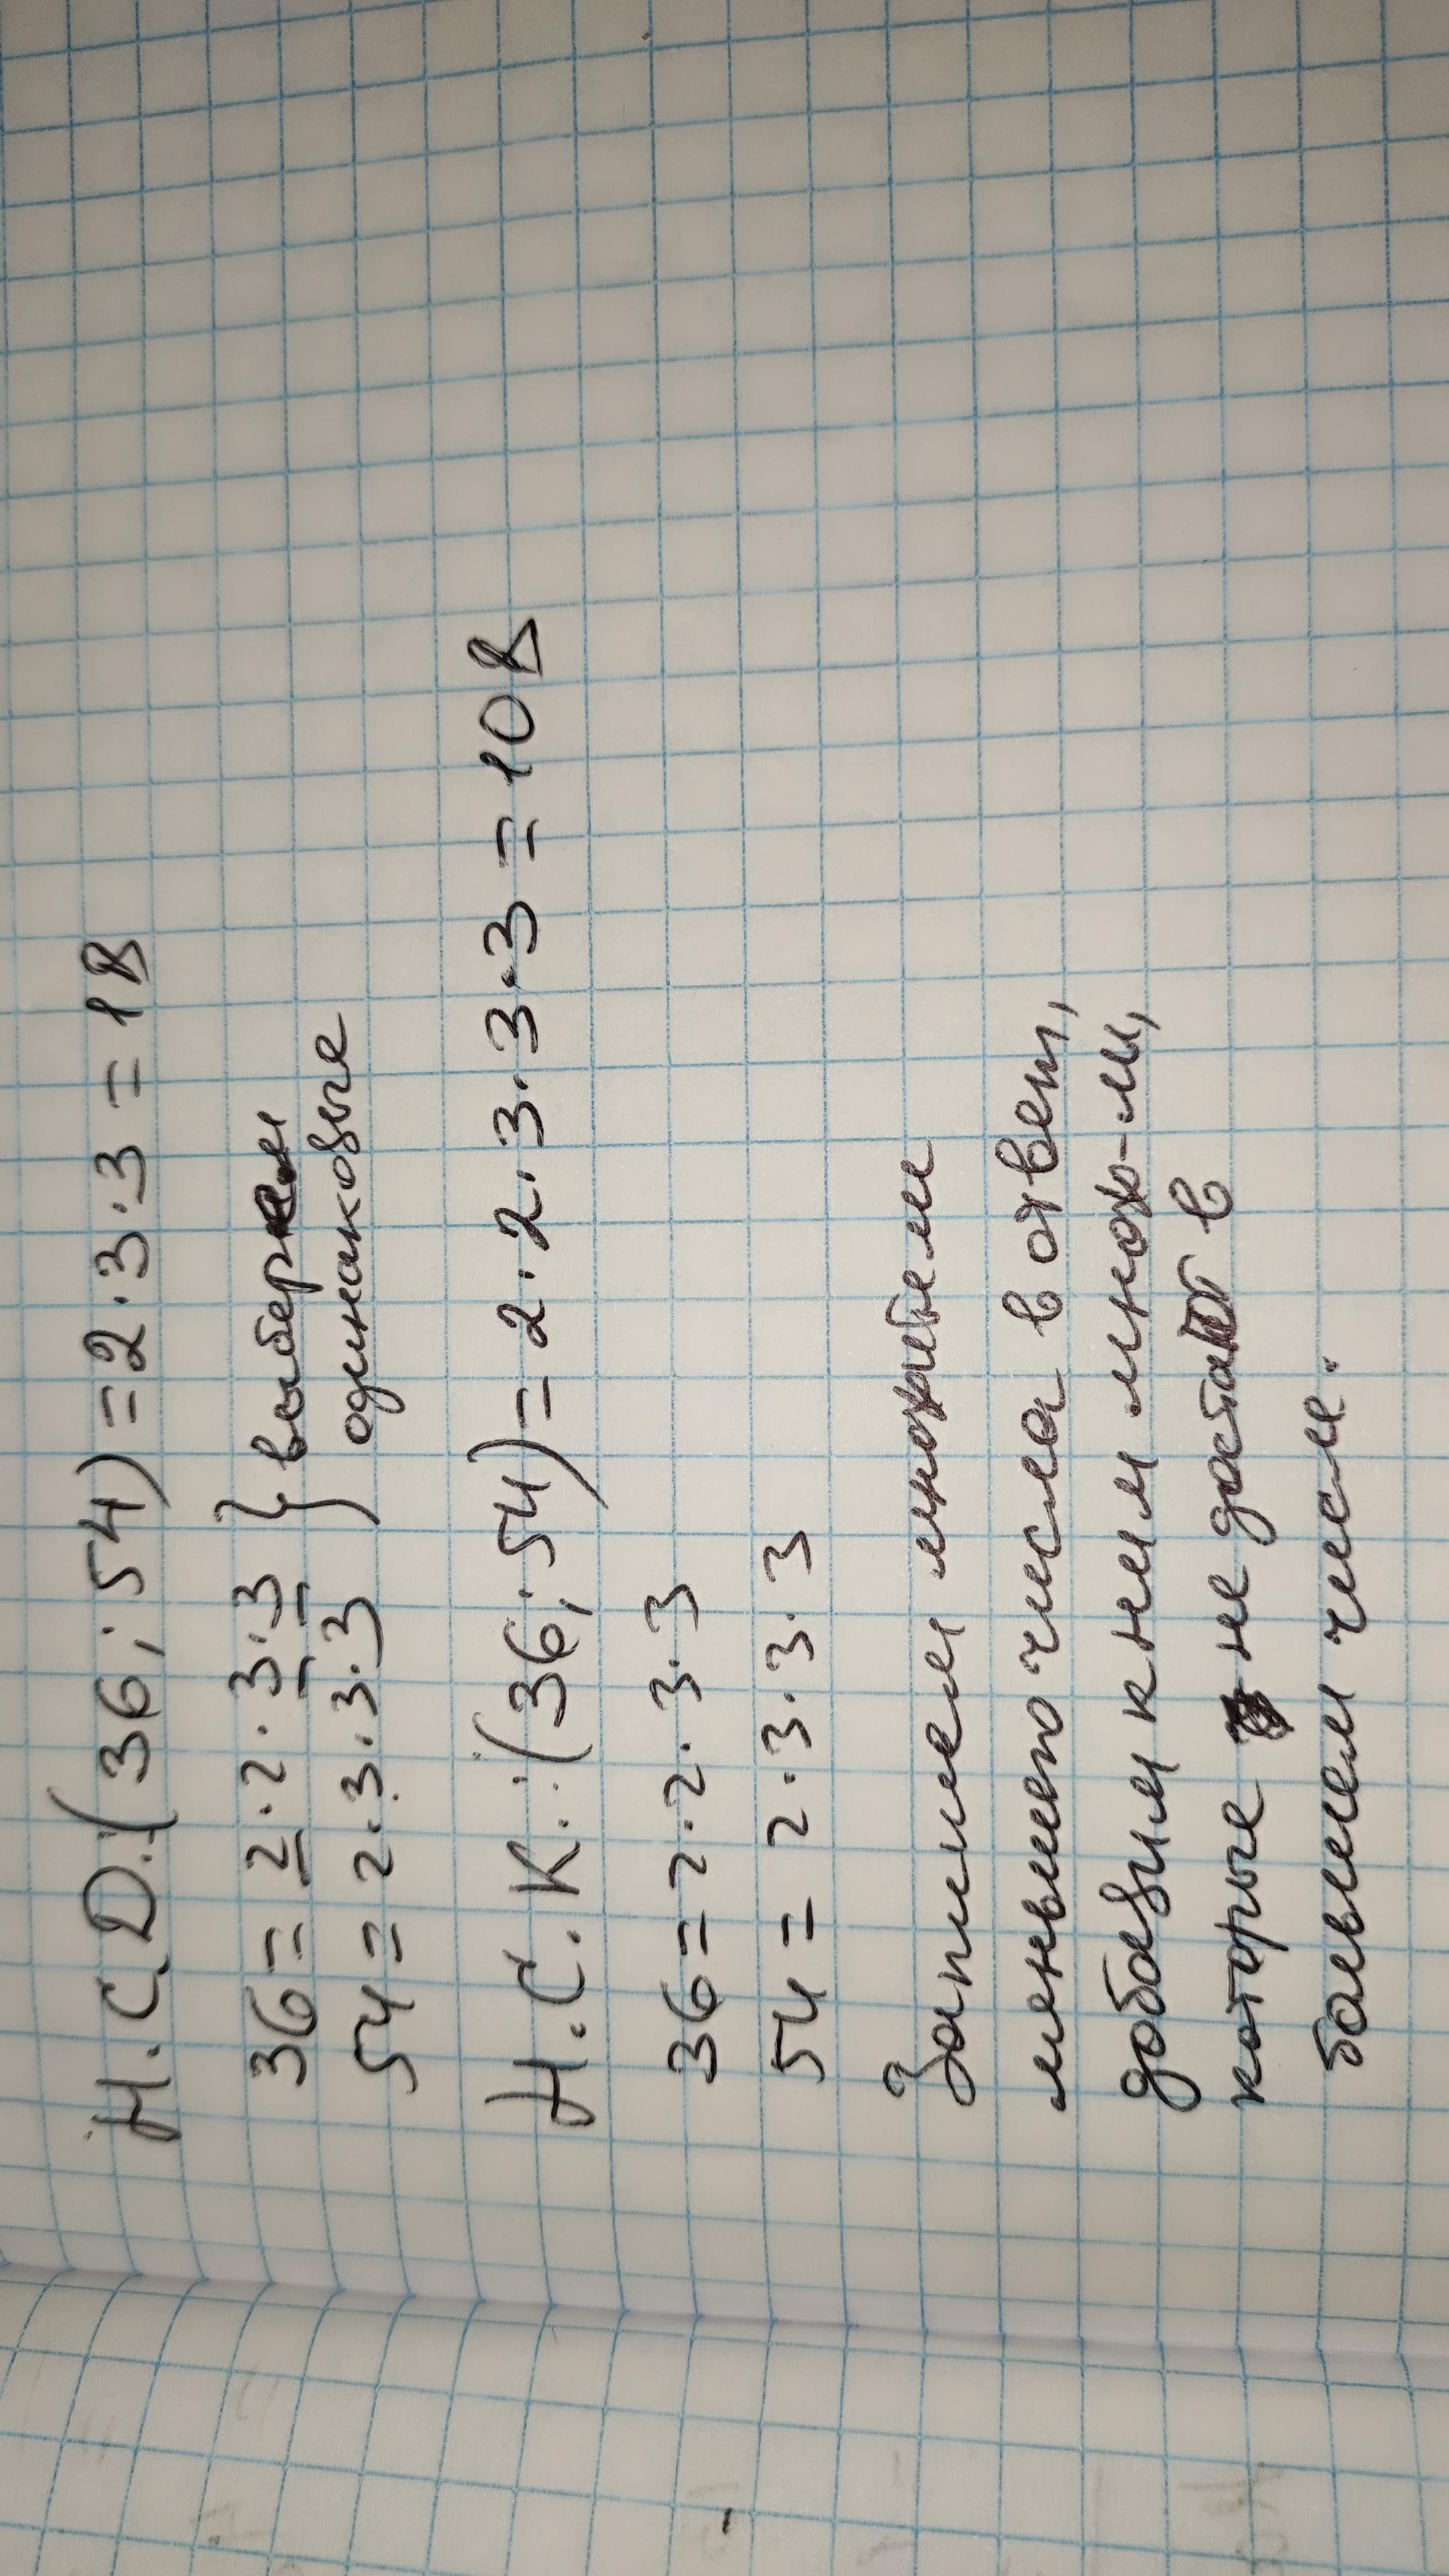 Н.С.D.(36;54)=2·3·3=18
36=2·2·3·3 } выберем
54=2·3·3·3 одинаковые
Н.С.К.:(36;54)=2·2·3·3·3=108
36=2·2·3·3
54=2·3·3·3
Запишем множим
меньшего числа в ответ,
добавим к ним множ-м,
которые не достаёт в
большем числе.